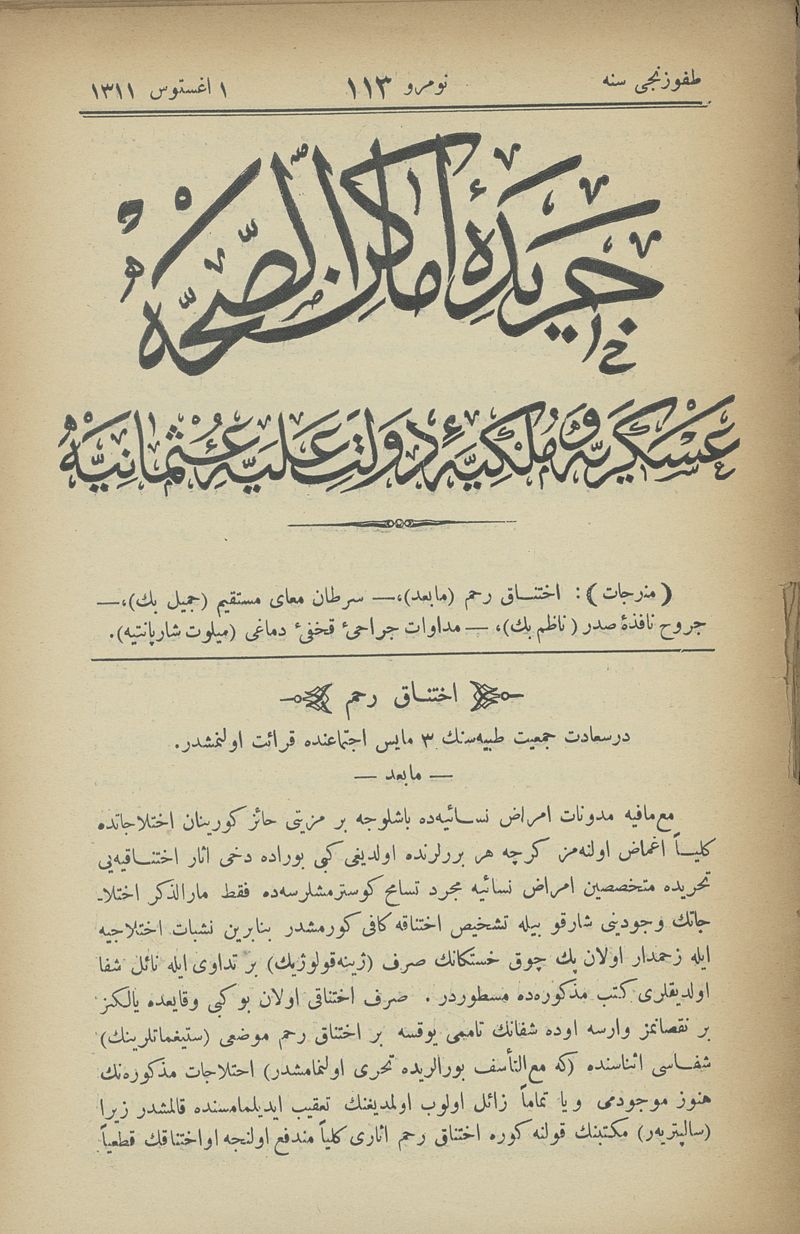 طقوزنجی سنه
نومرو ١١٣
١ اغستوس ١٣١١
جریدهٔ اماكن الصحه
عسكریه و ملكیهٔ دولت علیهٔ عثمانیه
(مندرجات): اختناق رحم (مابعد)، — سرطان معای مستقیم (جمیل بك)، —
جروح نافذهٔ صدر (ناظم بك)، — مداوات جراحیٔ قحفیٔ دماغی (میلوت شارپانتیه).
اختناق رحم
درسعادت جمعیت طبیه‌سنك ٣ مایس اجتماعنده قرائت اولنمشدر.
— مابعد —
مع‌مافیه مدونات امراض نسائیه‌ده باشلوجه بر مزیتی حائز كورینان اختلاجاتده
كلیاً اغماض اولنه‌مز كرچه هر بررلرنده اولدیغی كبی بوراده دخی اثار اختناقیه‌یی
تحریده متخصصین امراض نسائیه مجرد تسامح كوسترمشلرسه‌ده فقط مارالذكر اختلا-
جاتك وجودینی شارقو بیله تشخیص اختناقه كافی كورمشدر بنابرین نشبات اختلاجیه
ایله زحمدار اولان پك چوق خستكانك صرف (ژینه‌قولوژیك) بر تداوی ایله نائل شفا
اولدیقلری كتب مذكوره‌ده مسطوردر . صرف اختناقی اولان بو كبی وقایعده یالكز
بر نقصانمز وارسه اوده شفانك تاممی یوقسه بر اختناق رحم موضعی (ستیغماتلرینك)
شفاسی اثناسنده (كه مع‌التأسف بورالریده تحری اولنمامشدر) احتلاجات مذكوره‌نك
هنوز موجودمی ویا تماماً زائل اولوب اولمدیغنك تعقیب ایدیلمامسنده قالمشدر زیرا
(سالپتریه‌ر) مكتبنك قولنه كوره اختناق رحم اثاری كلیاً مندفع اولنجه او اختناقك قطعیاً